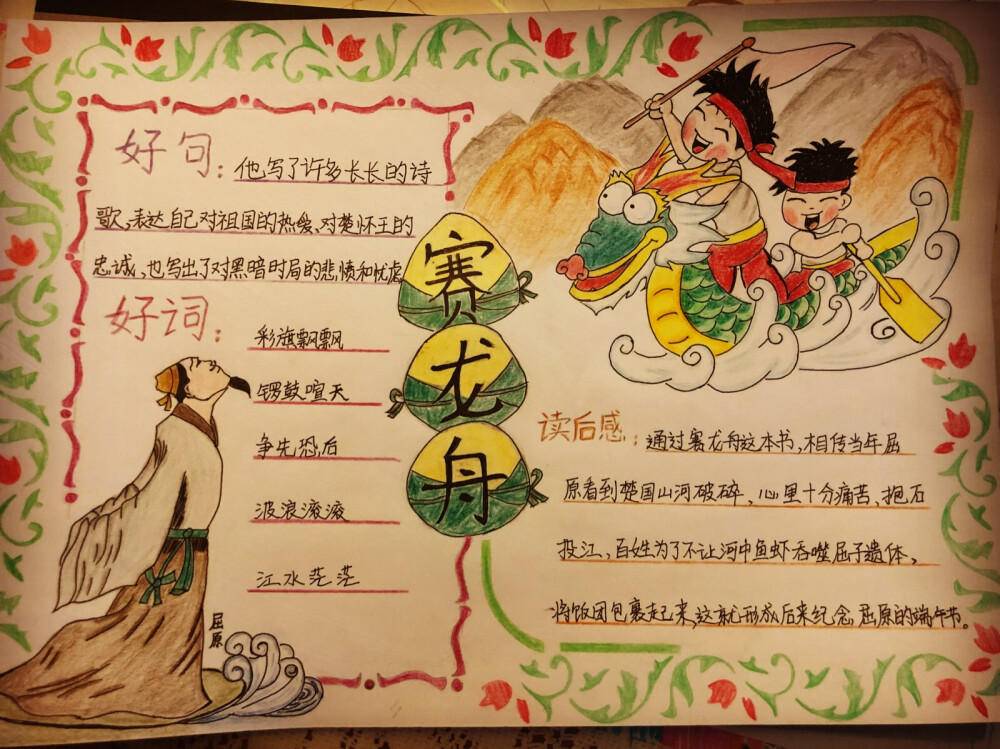 好句：他写了许多长长的诗
歌，表达自己对祖国的热爱、对楚怀王的
忠诚、也写出了对黑暗时局的悲愤和忧虑
好词：
彩旗飘飘
锣鼓喧天
争先恐后
波浪滚滚
江水茫茫
屈原
赛
龙
舟
读后感：通过赛龙舟这本书，相传当年屈
原看到楚国山河破碎、心里十分痛苦、抱石
投江、百姓为了不让河中鱼虾吞噬屈子遗体，
将饭团包裹起来，这就形成后来纪念屈原的端午节。